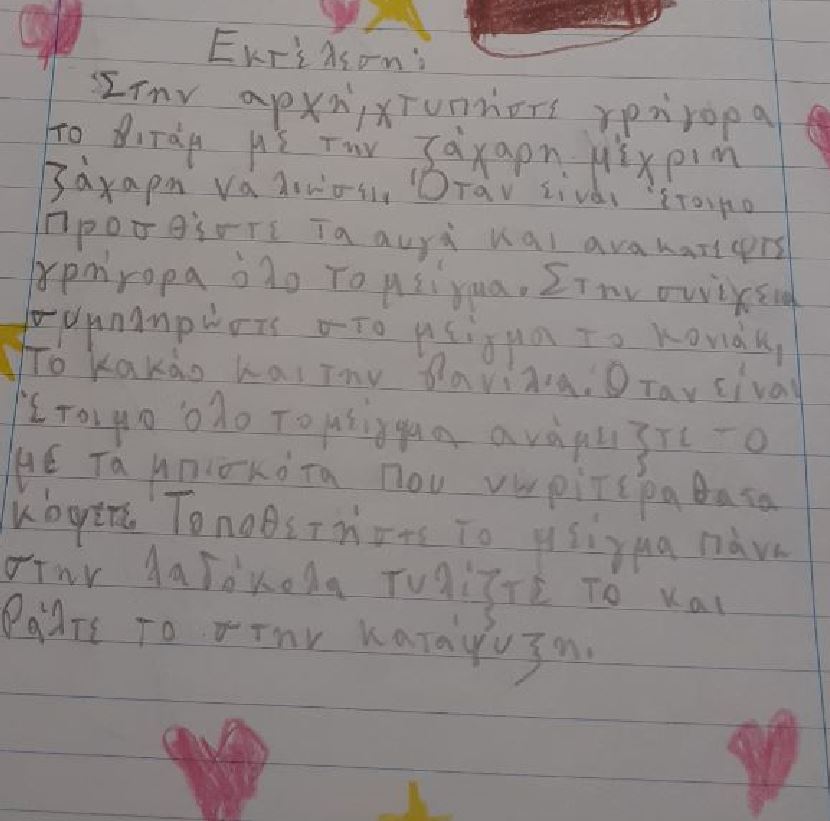 Εκτέλεση:
Στην αρχή, χτυπήστε γρήγορα
το βιτάμ με την ζάχαρη μέχρι η
ζάχαρη να λιώσει. Όταν είναι έτοιμο
Προσθέστε τα αυγά και ανακατέψτε
γρήγορα όλο το μείγμα. Στην συνέχεια
συμπληρώστε στο μείγμα το κονιάκ,
το κακάο και την βανίλια. Όταν είναι
έτοιμο όλο το μείγμα ανάμειξτε το
με τα μπισκότα που νωρίτερα θα τα
κόψετε. Τοποθετήστε το μείγμα πάνω
στην λαδόκολα τυλίξτε το και
βάλτε το στην κατάψυξη.